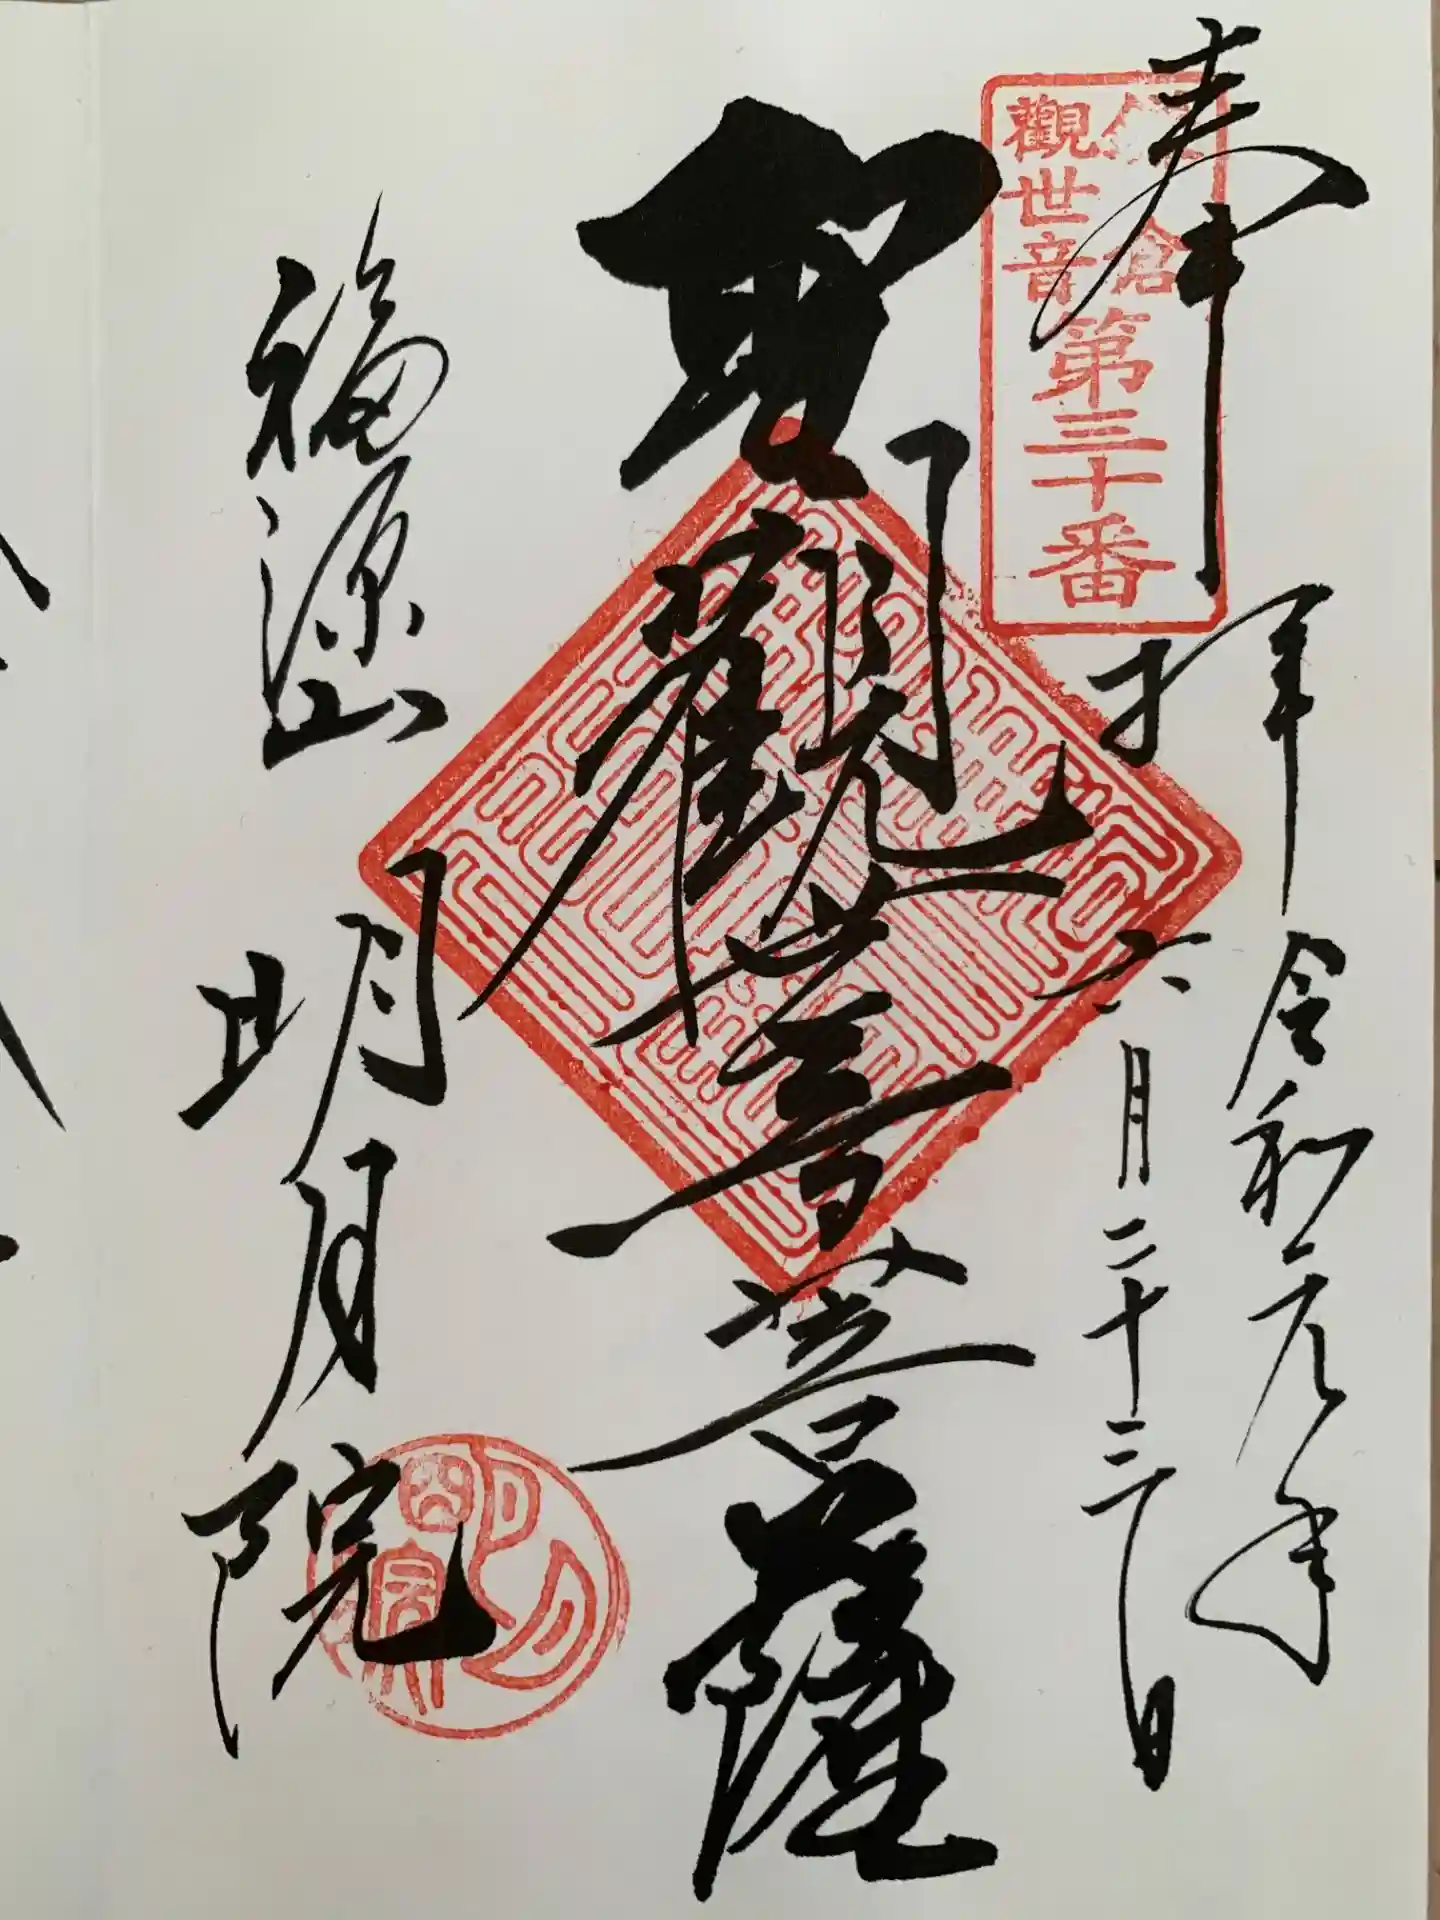 奉拝
令和元年
六月二十三日
鎌倉
觀世音
第三十番
聖觀世音菩薩
福源山
明月院